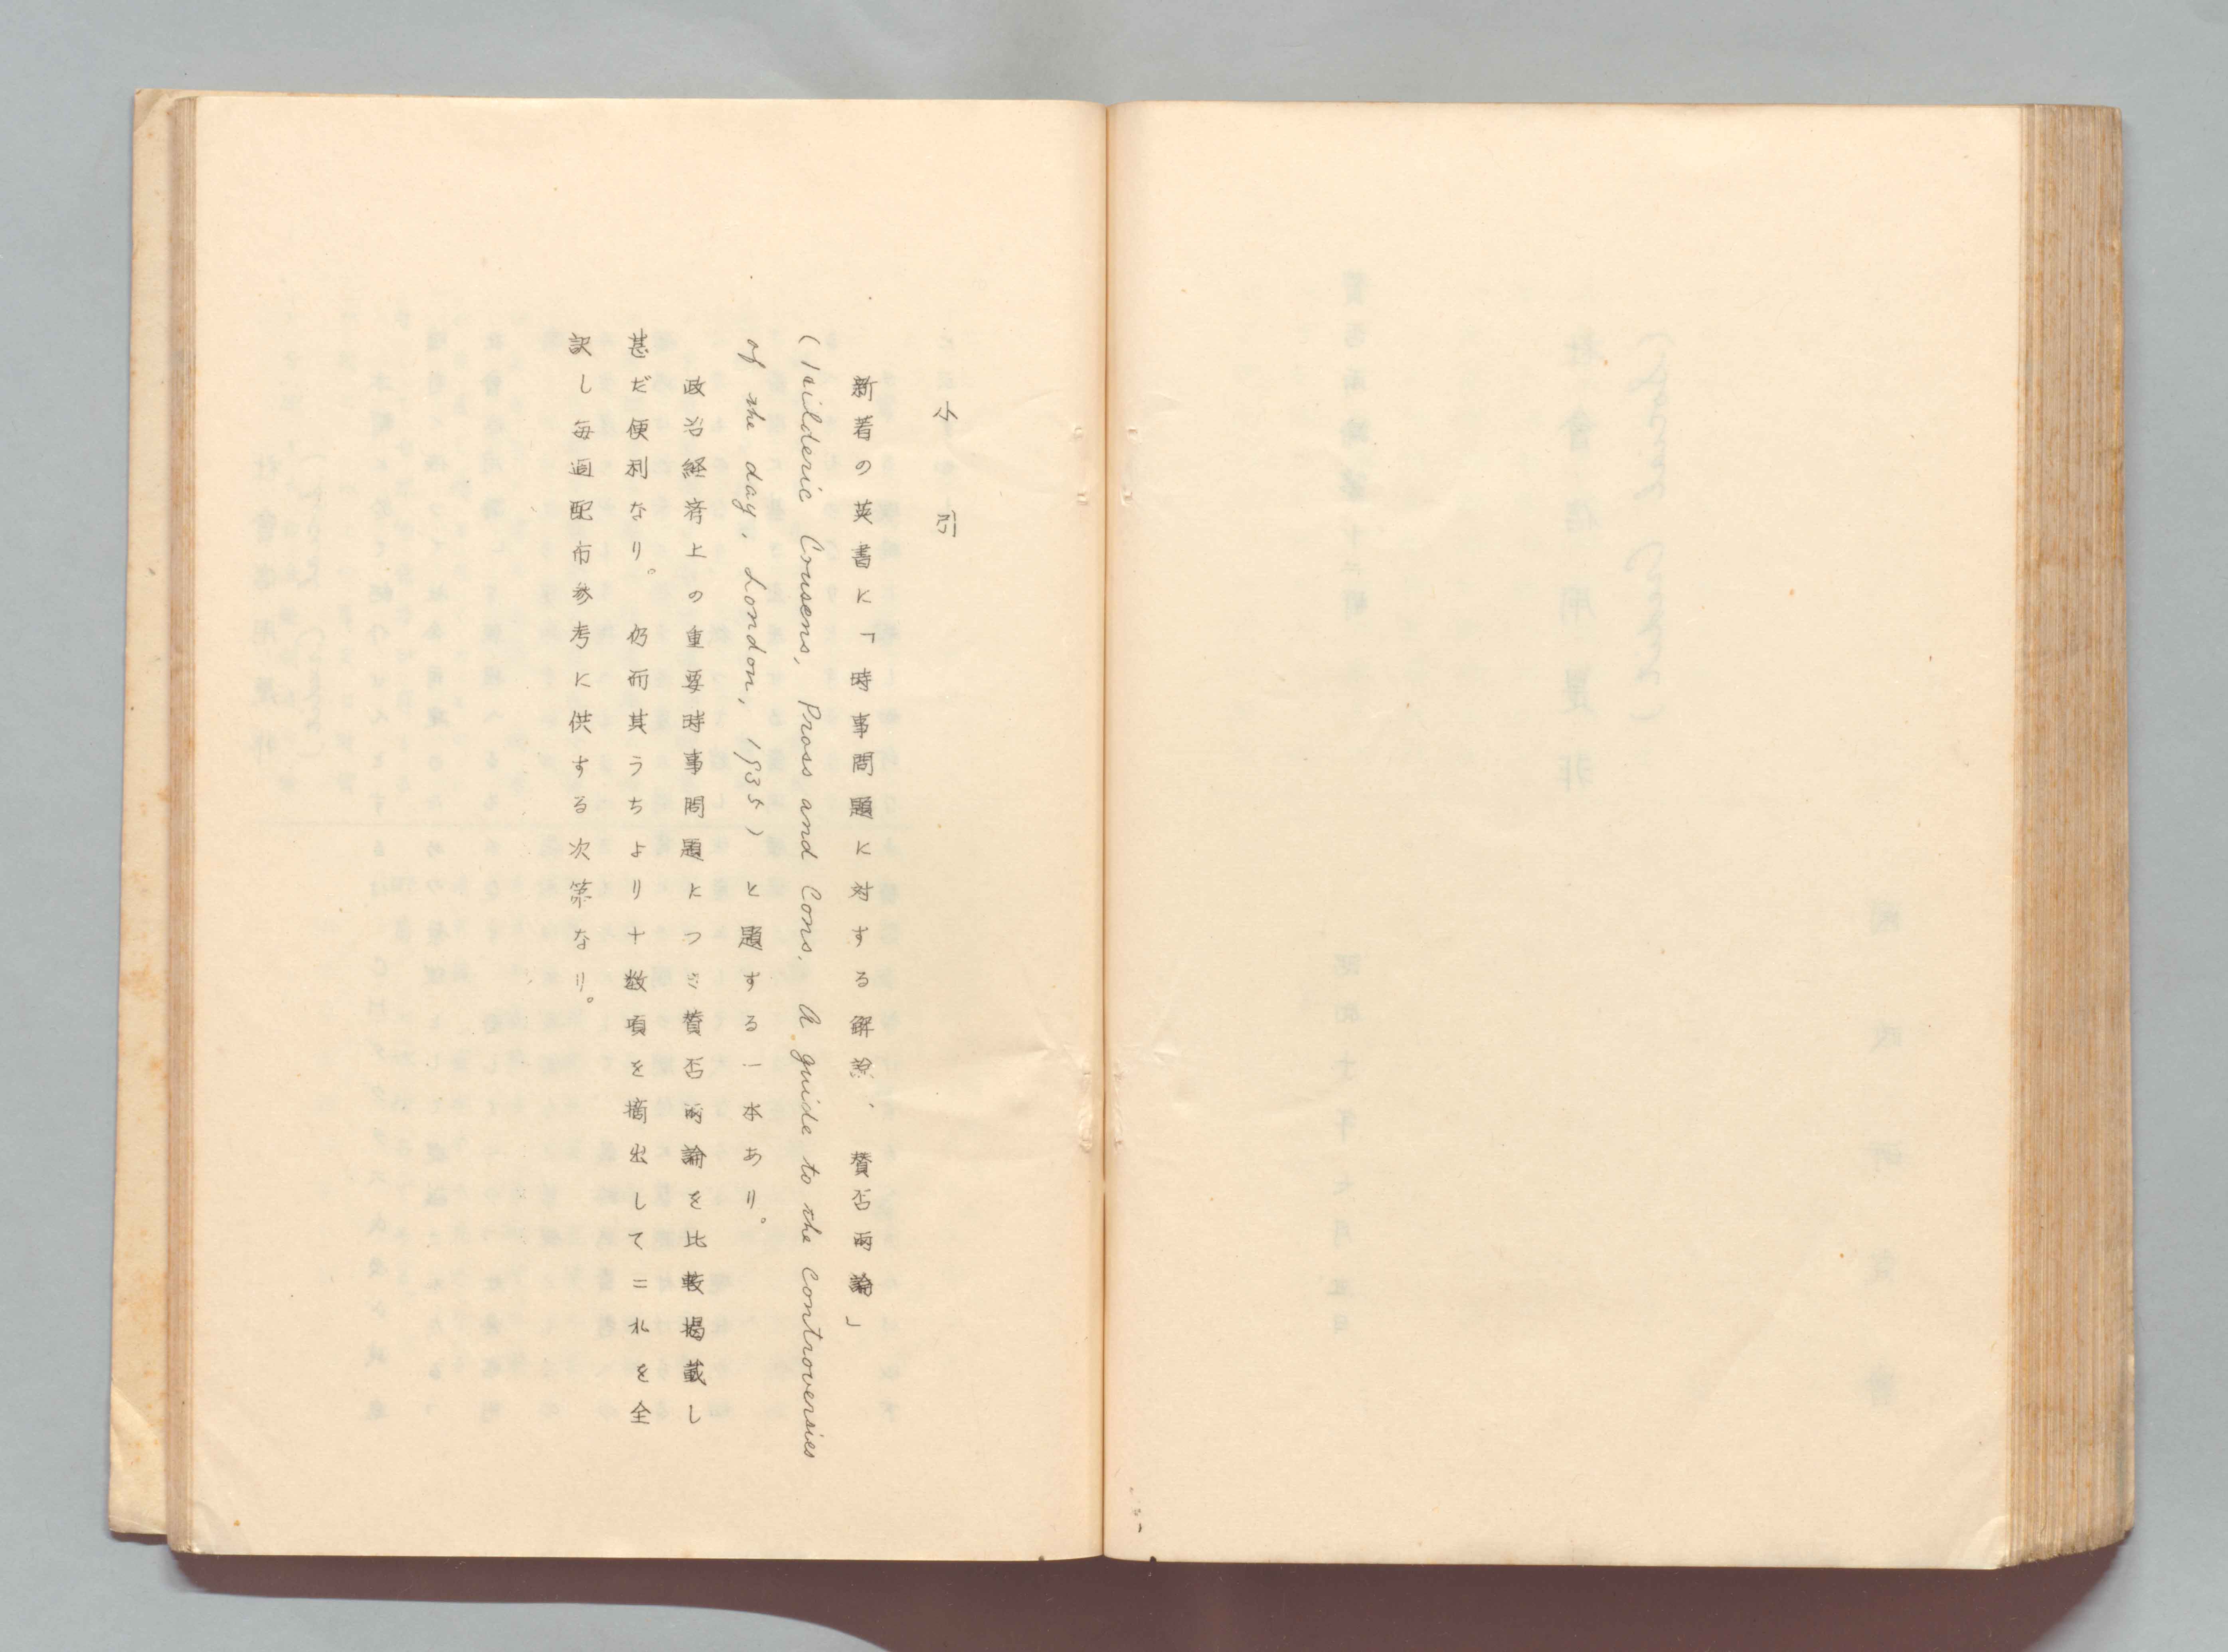 小引
新著の英書に「時事問題に対する解説、賛否両論」
(Hilderic Cousens, Pross and Cons. A guide to the Controversies
of the day. London, 1935)と題する一本あり。
政治経済上の重要時事問題につき賛否両論を比較掲載し
甚だ便利なり。仍而其うちより十数項を摘出してこれを全
訳し毎週配布参考に供する次第なり。